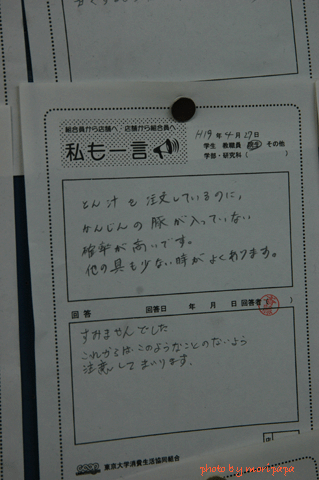 総合員から店舗へ・店舗から総合員へ
私も一言
H19年4月27日
学生 教職員 院生 その他
学部・研究科( )
とん汁を注文しているのに、
かんじんの豚が入っていない
確率が高いです。
他の具も少ない時がよくあります。
回答 回答日 年 月 日 回答者( )
すみませんでした
これからは、このようなことのないよう
注意してまいります。
東京大学消費生活協同組合
photo by moripapa